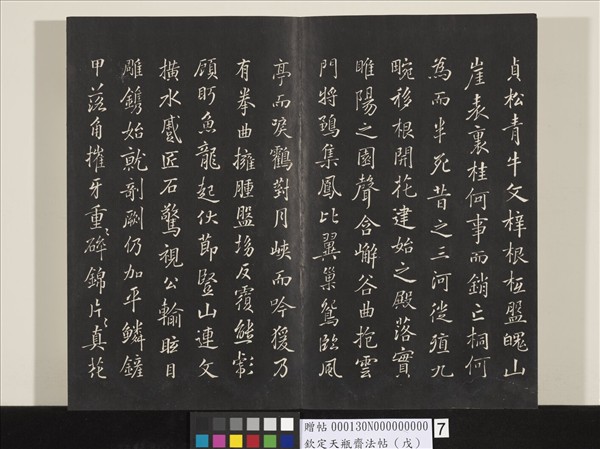 貞松青牛文梓根柢盤魄山
崖表裏桂何事而銷亡桐何
為而半死昔之三河徙殖九
畹移根開花建始之殿落實
睢陽之園聲含嶰谷曲抱雲
門將鵷集鳳比翼巢鴛臨風
亭而唳鸖對月峽而吟猨乃
有拳曲擁腫盤坳反覆熊彪
顧眄魚龍起伏節豎山連文
橫水蹙匠石驚視公輸眩目
雕鐫始就剞劂仍加平鱗鏟
甲落角摧牙重〻碎錦片〻真花
贈帖 000130N000000000
欽定天瓶齋法帖（戊）
7